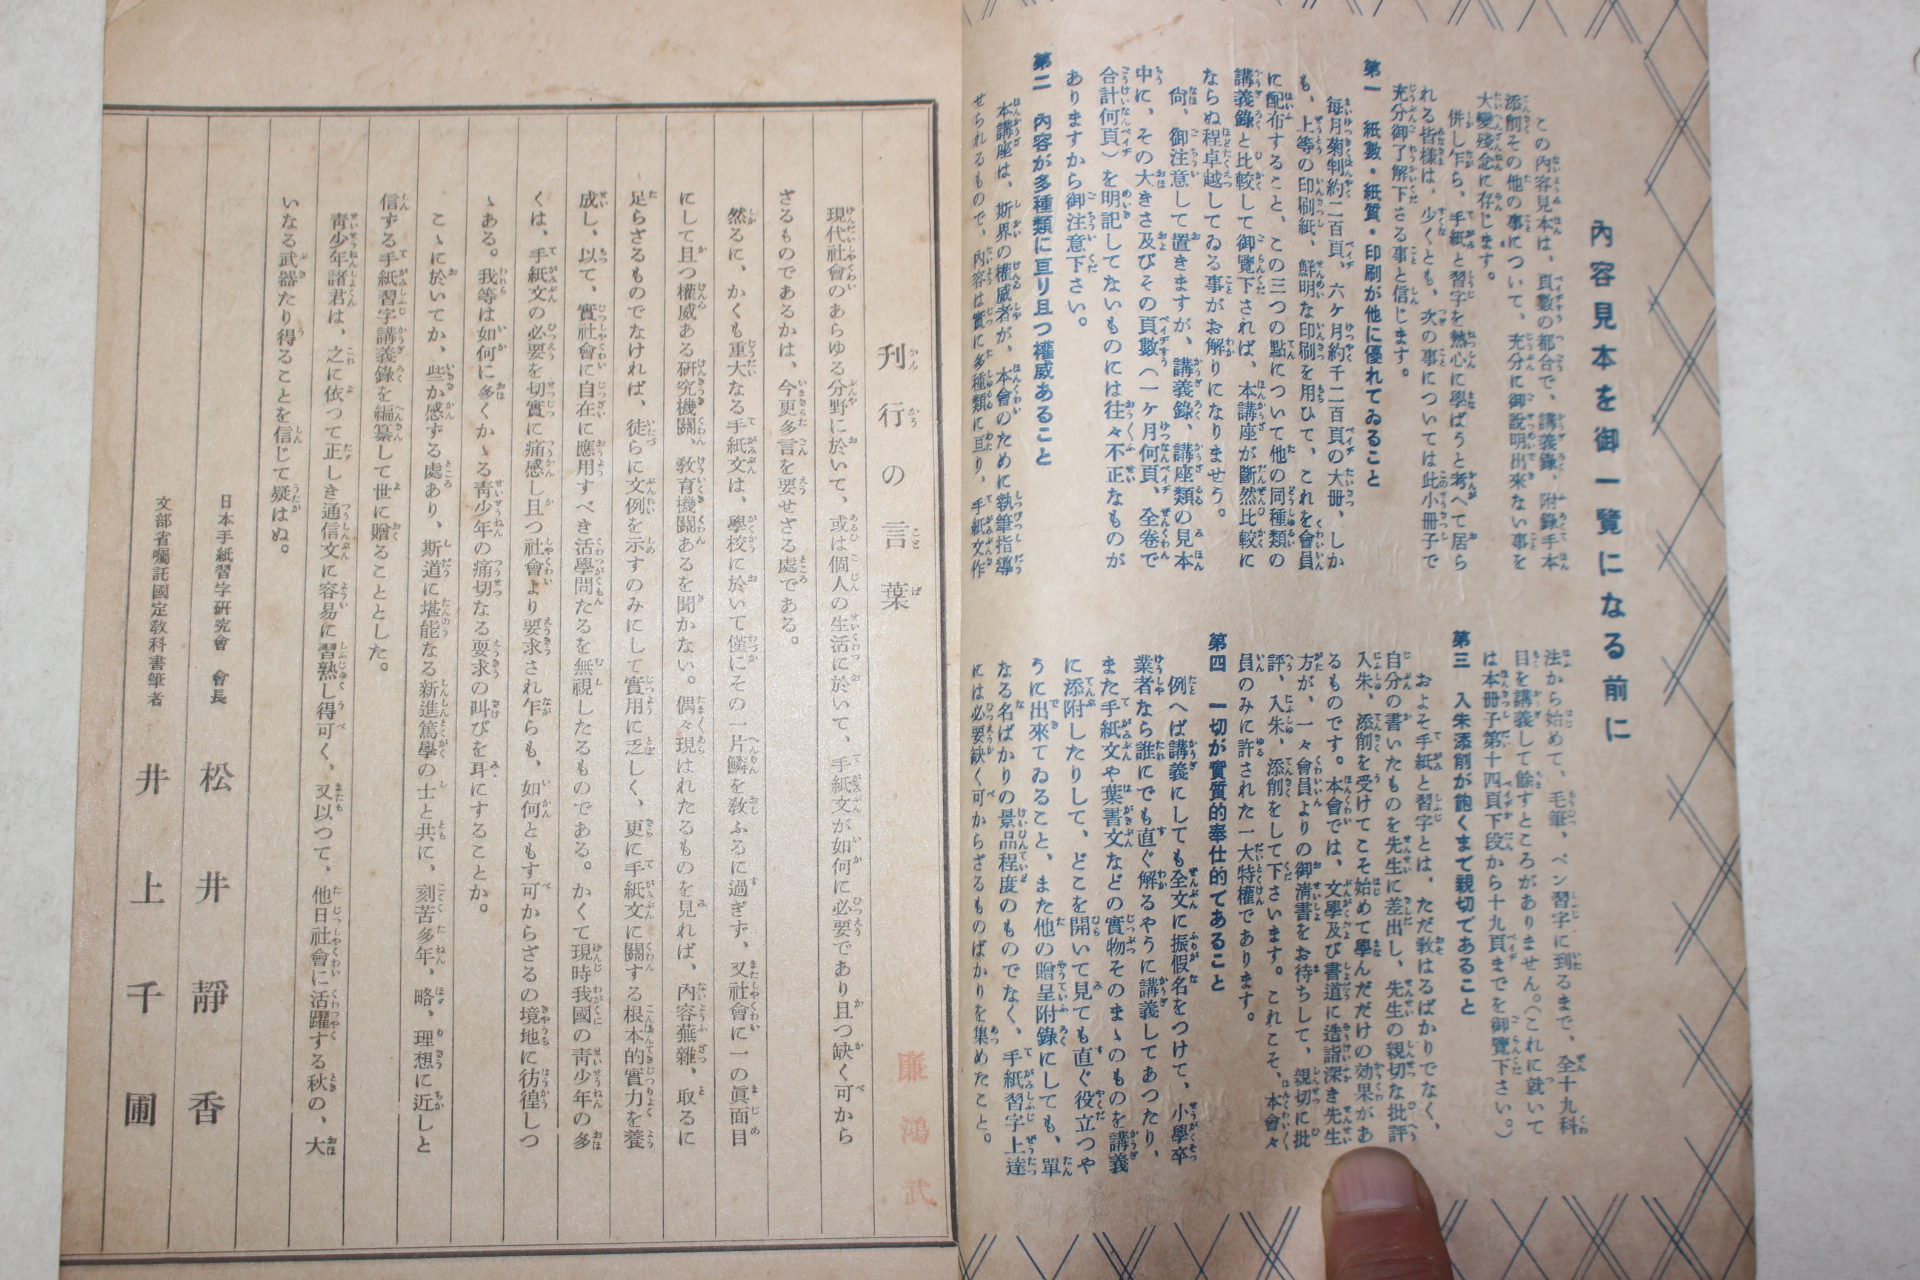 內容見本を御一覽になる前に
この內容見本は、頁數の都合で、講義錄、附錄手本
添削その他の事について、充分に御說明出來ない事を
大變殘念に存じます。
併し乍ら、手紙と習字を熱心に學ばうと考へて居ら
れる皆樣は、少くとも、次の事については此小冊子で
充分御了解下さる事と信じます。
第一　紙數・紙質・印刷が他に優れてゐること
每月菊判約二百頁、六ケ月約千二百頁の大冊、しか
も、上等の印刷紙、鮮明な印刷を用ひて、これを會員
に配布すること、この三つの點について他の同種類の
講義錄と比較して御覽下されば、本講座が斷然比較に
ならぬ程卓越してゐる事がお解りになりませう。
尙、御注意して置きますが、講義錄、講座類の見本
中に、その大きさ及びその頁數(一ケ月何頁、全卷で
合計何頁)を明記してないものには往々不正なものが
ありますから御注意下さい。
第二　內容が多種類に亘り且つ權威あること
本講座は、斯界の權威者が、本會のために執筆指導
せられるもので、內容は實に多種類に亘り、手紙文作
法から始めて、毛筆、ペン習字に到るまで、全十九科
目を講義して餘すところがありません。(これに就いて
は本冊子第十四頁下段から十九頁までを御覽下さい。)
第三　入朱添削が飽くまで親切であること
およそ手紙と習字とは、ただ敎はるばかりでなく、
自分の書いたものを先生に差出し、先生の親切な批評
入朱、添削を受けてこそ始めて學んだだけの効果があ
るものです。本會では、文學及び書道に造詣深き先生
方が、一々會員よりの御淸書をお待ちして、親切に批
評、入朱、添削をして下さいます。これこそ、本會々
員のみに許された一大特權であります。
第四　一切が實質的奉仕的であること
例へば講義にしても全文に振假名をつけて、小學卒
業者なら誰にでも直ぐ解るやうに講義してあつたり、
また手紙文や葉書文などの實物そのまゝのものを講義
に添附したりして、どこを開いて見ても直ぐ役立つや
うに出來てゐること、また他の贈呈附錄にしても、單
なる名ばかりの景品程度のものでなく、手紙習字上達
には必要缺く可からざるものばかりを集めたこと。
刊行の言葉
現代社會のあらゆる分野に於いて、或は個人の生活に於いて、手紙文が如何に必要であり且つ缺く可から
ざるものであるかは、今更多言を要せざる處である。
然るに、かくも重大なる手紙文は、學校に於いて僅にその一片鱗を敎ふるに過ぎず、又社會に一の眞面目
にして且つ權威ある硏究機關、敎育機關あるを聞かない。偶々現はれたるものを見れば、內容蕪雜、取るに
足らざるものでなければ、徒らに文例を示すのみにして實用に乏しく、更に手紙文に關する根本的實力を養
成し、以て、實社會に自在に應用すべき活學問たるを無視したるものである。かくて現時我國の靑少年の多
くは、手紙文の必要を切實に痛感し且つ社會より要求され乍らも、如何ともす可からざるの境地に彷徨しつ
ゝある。我等は如何に多くかゝる靑少年の痛切なる要求の叫びを耳にすることか。
こゝに於いてか、些か感ずる處あり、斯道に堪能なる新進篤學の士と共に、刻苦多年、略、理想に近しと
信ずる手紙習字講義錄を編纂して世に贈ることとした。
靑少年諸君は、之に依つて正しき通信文に容易に習熟し得可く、又以つて、他日社會に活躍する秋の、大
いなる武器たり得ることを信じて疑はぬ。
日本手紙習字硏究會　會長　松井靜香
文部省囑託國定敎科書筆者　井上千圃